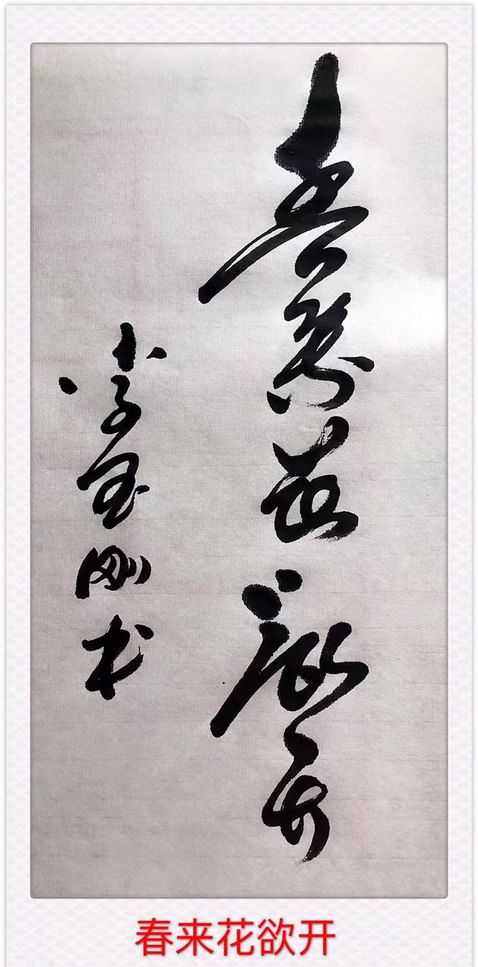 春来花欲开
李玉刚书
春来花欲开